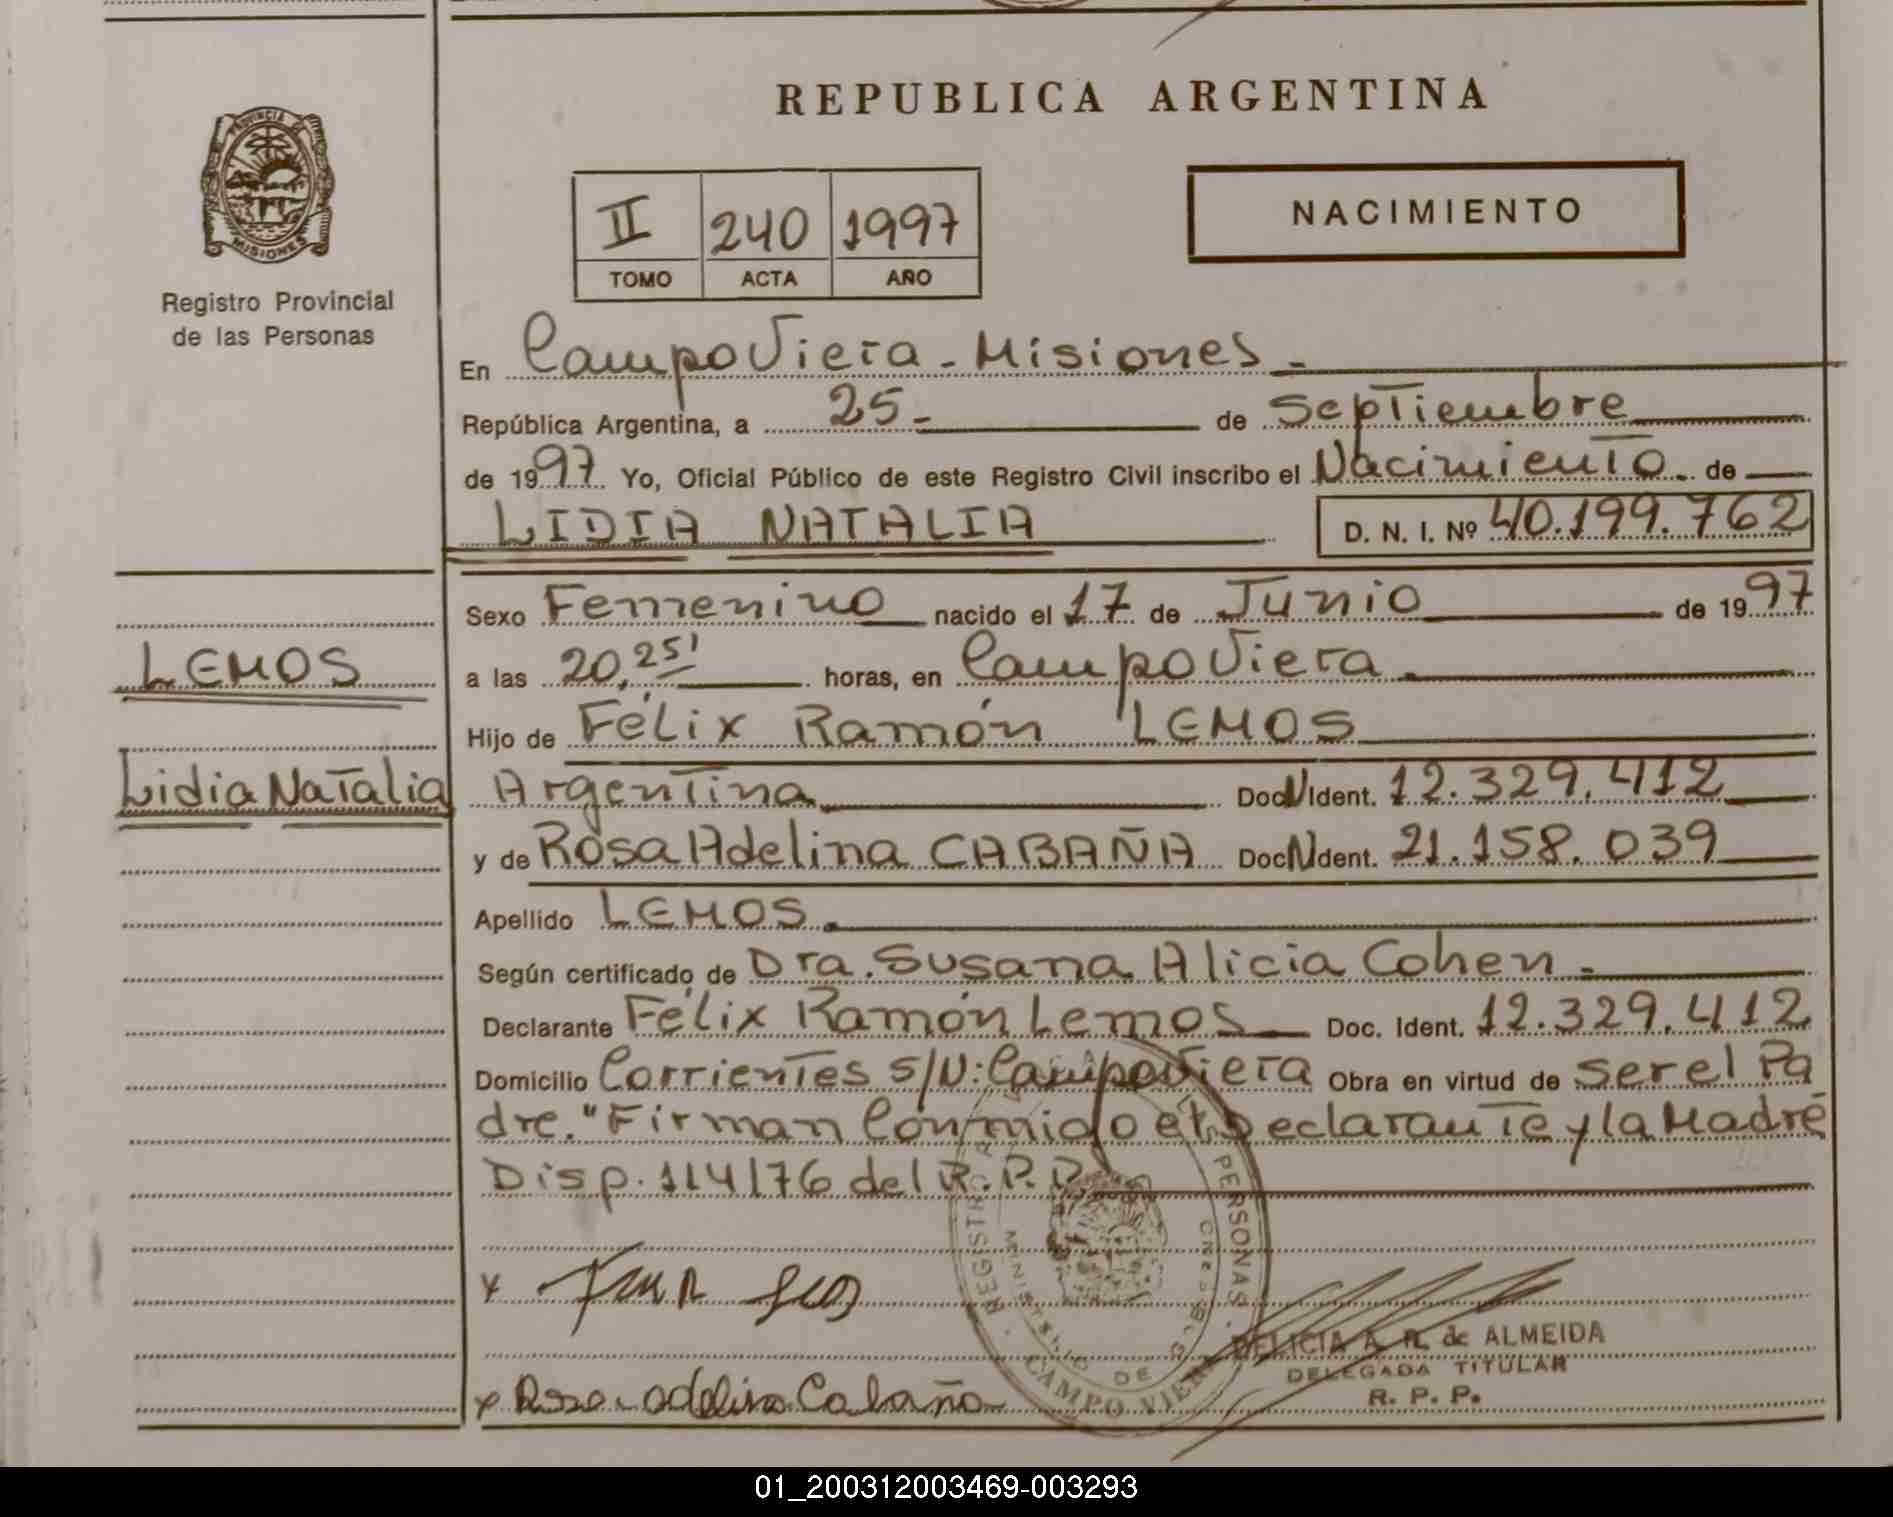 REPUBLICA ARGENTINA
PROVINCIA DE
MISIONES
Registro Provincial
de las Personas
II 240 1997
TOMO ACTA AÑO
NACIMIENTO
En Campo Viera - Misiones -
República Argentina, a 25 - de Septiembre
de 1997 Yo, Oficial Público de este Registro Civil inscribo el Nacimiento - de
LIDIA NATALIA D. N. I. Nº 40.199.762
Sexo Femenino nacido el 17 de Junio de 1997
LEMOS
a las 20,25' horas, en Campo Viera
Hijo de Félix Ramón LEMOS
Lidia Natalia
Argentina Doc N Ident. 12.329.412
y de Rosa Adelina CABAÑA Doc N dent. 21.158.039
Apellido LEMOS.
Según certificado de Dra. Susana Alicia Cohen -
Declarante Félix Ramón Lemos Doc. Ident. 12.329.412
Domicilio Corrientes S/N: Campo Viera Obra en virtud de ser el Pa
dre. "Firman Conmigo el Declarante y la Madre
Disp. 114/76 del R.P.P.
x
DELICIA A. R. de ALMEIDA
DELEGADA TITULAR
R. P. P.
x Rosa adelina Cabaña
PERSONAS
MINISTERIO DE
CAMPO VIERA
01_200312003469-003293